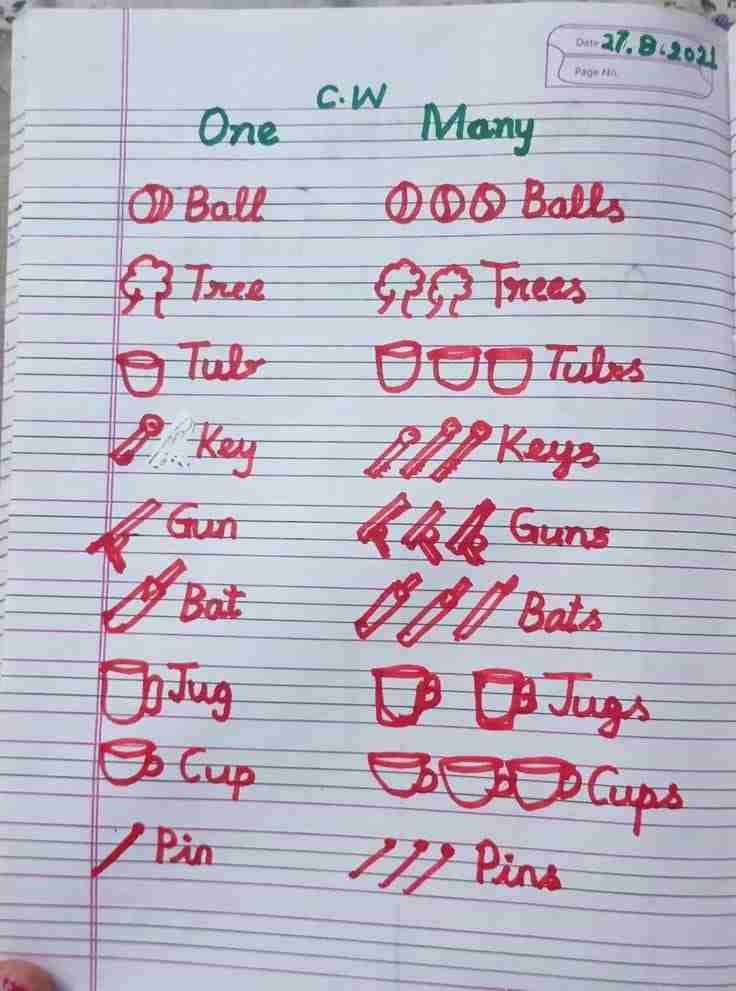 Date 27.8.2021
Page No.
C.W
One Many
Ball Balls
Tree Trees
Tub Tubs
Key Keys
Gun Guns
Bat Bats
Jug Jugs
Cup Cups
Pin Pins